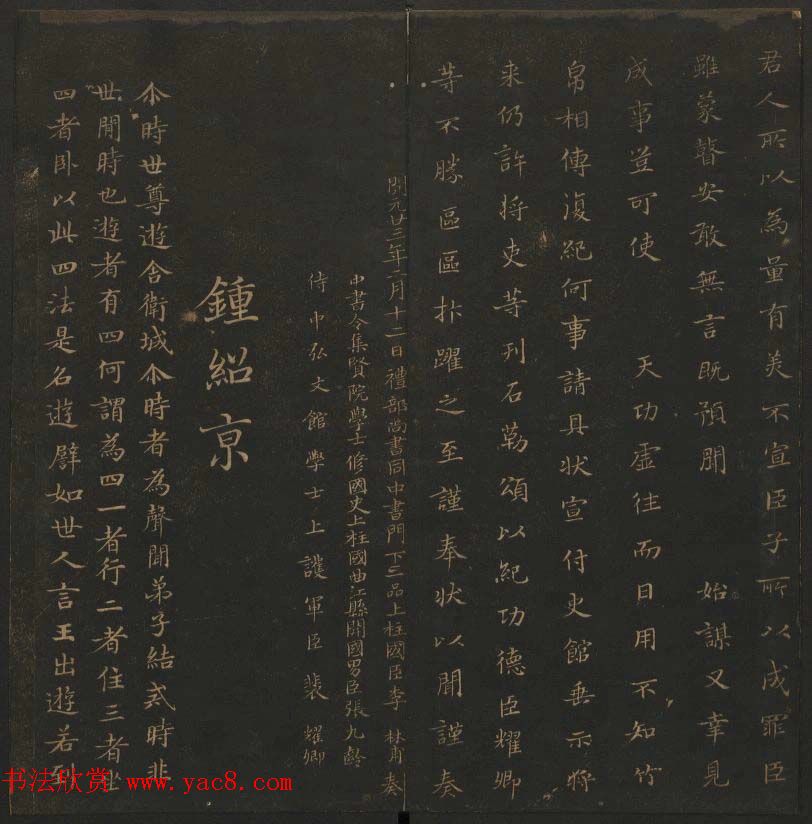 君人所以為量有美不宣臣子所以成罪臣
雖蒙瞽安敢無言既預聞　始謀又幸見
成事豈可使　天功虛往而日用不知竹
帛相傳復紀何事請具狀宣付史館垂示將
来仍許將吏等刊石勒頌以紀功德臣耀卿
等不勝區區抃躍之至謹奉狀以聞謹奏
開元廿三年二月十二日禮部尚書同中書門下三品上柱國臣李林甫奏
中書令集賢院學士脩國史上柱國曲江縣開國男臣張九齡
侍中弘文館學士上護軍臣裴耀卿
鍾紹京
尒時世尊遊舍衛城尒時者為聲聞弟子結戒時非
世間時也遊者有四何謂為四一者行二者住三者坐
四者臥以此四法是名遊譬如世人言王出遊若到
书法欣赏 www.yac8.com